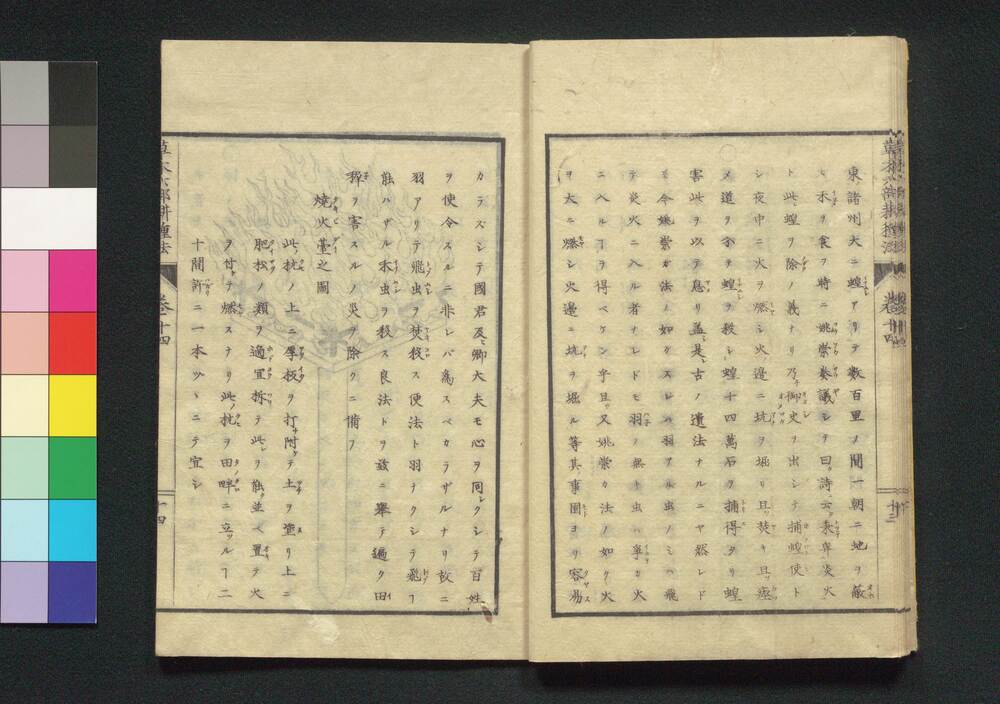 東諸州大ニ蝗アリテ数百里ノ間一朝ニ地ヲ蔽
ヒ禾ヲ食フ時ニ姚崇奏議シテ曰ク詩ニ云ク秉畀炎火
ト此レ蝗ヲ除ノ義ナリ乃チ御史ヲ出シテ捕蝗使ト
シ夜中ニ火ヲ燃シ火邊ニ坑ヲ堀リ且ツ焚キ且ツ瘞
メ道ヲ分テ蝗ヲ殺シ蝗十四萬石ヲ捕得タリ蝗
害此ヲ以テ息リ蓋シ是レ古ノ遺法ナルニヤ然レド
モ今姚崇ガ法ノ如クスレバ羽アル虫ノミハ飛
テ炎火ニ入ル者ナレドモ羽ノ無キ虫ハ寧ガ火
ニ入ルヿヲ得ベケンヤ且ツ又姚崇カ法ノ如ク火
ヲ大ニ燃シ火邊ニ坑ヲ堀ル等其ノ事固ヨリ容易
カラズシテ國君及ビ卿大夫モ心ヲ同クシテ百姓
ヲ使令スルニ非レバ為スベカラザルナリ故ニ
羽アリテ飛虫ヲ焚殺ス便法ト羽ナクシテ飛ブヿ
能ハザル禾虫ヲ殺ス良法トヲ玆ニ舉テ過ク田
穉ヲ害スルノ災ヲ除クニ備フ
燒火臺之圖
此ノ杭ノ上ニ厚板ヲ打チ附ケテ土ヲ塗リ上ニ
肥松ノ類ヲ適宜拆テ此レヲ能ク並ベ置テ火
ヲ付テ燃スナリ此ノ杭ヲ田畔ニ立ツルヿ二
十間許ニ一本ツヽニテ宜シ
草木六部耕種法
卷十四
十四